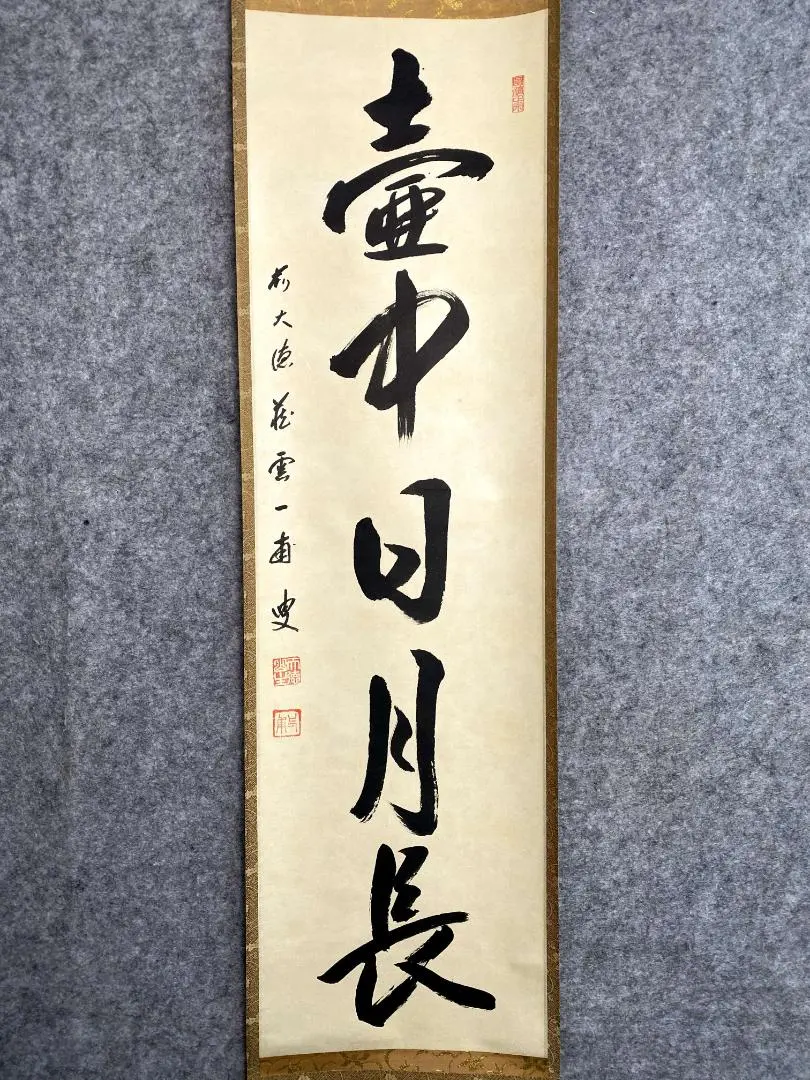 壷中日月長
前大徳蔵雲一甫叟